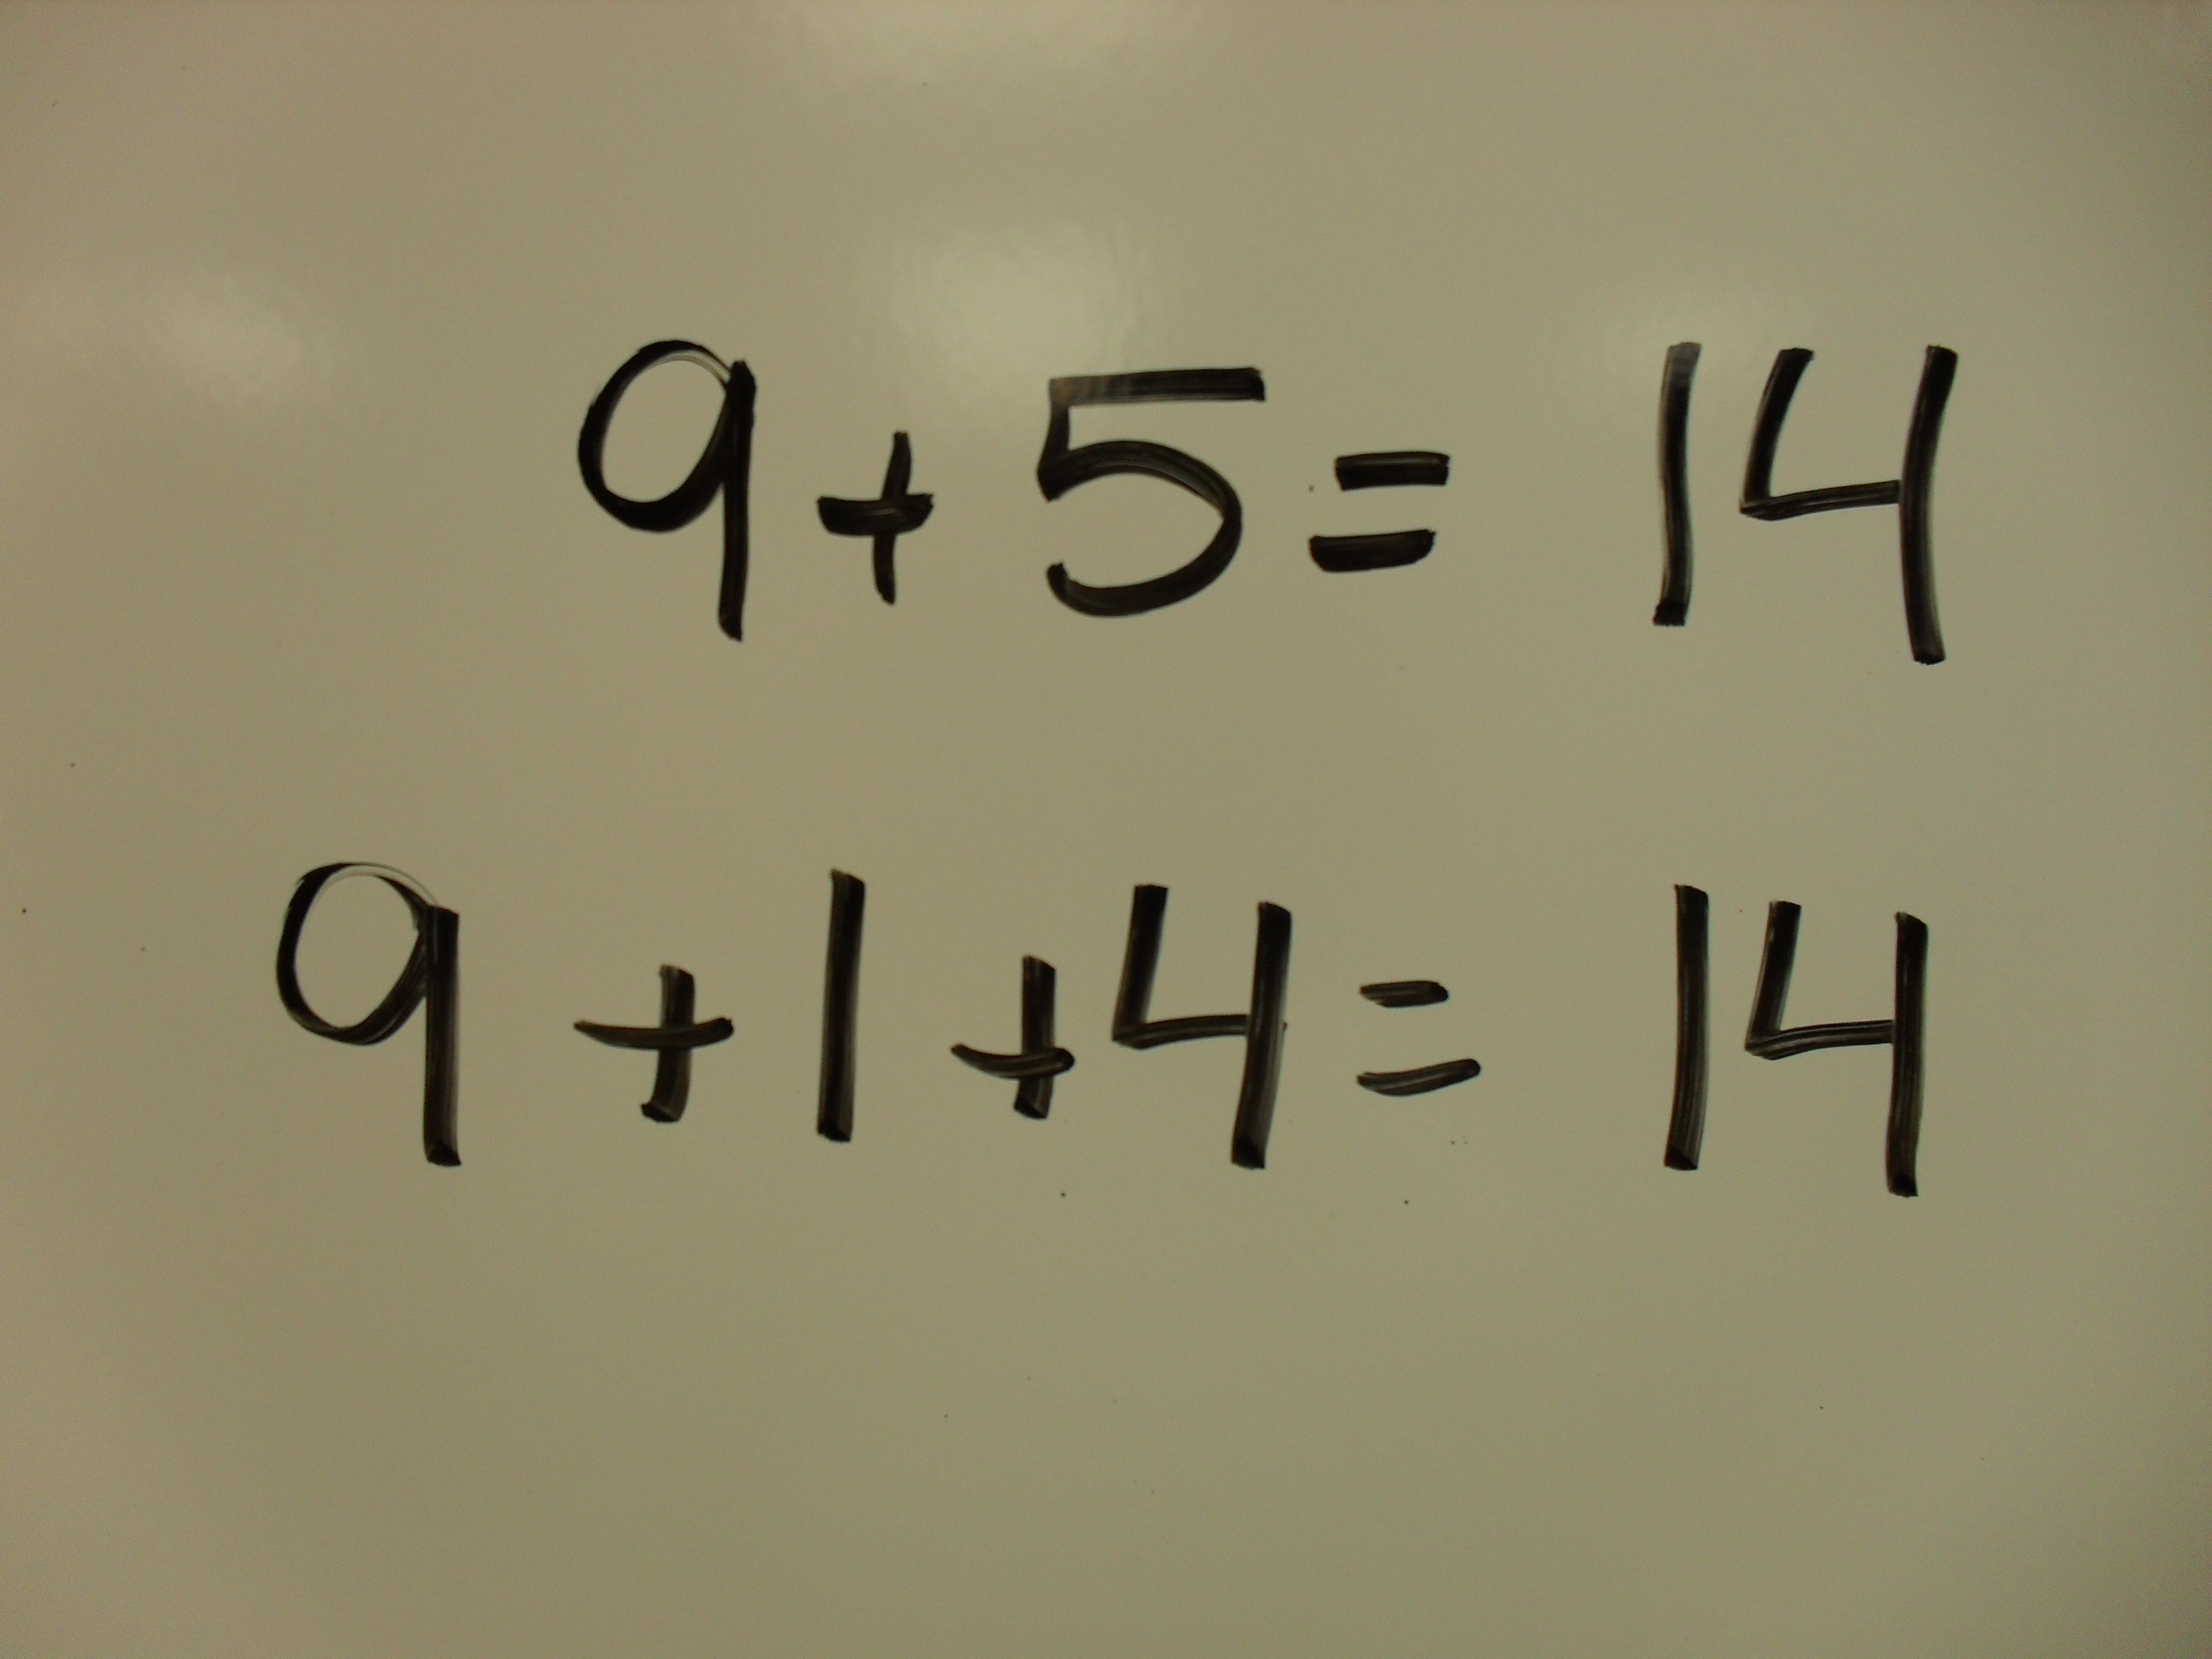 9 + 5 = 14
9 + 1 + 4 = 14